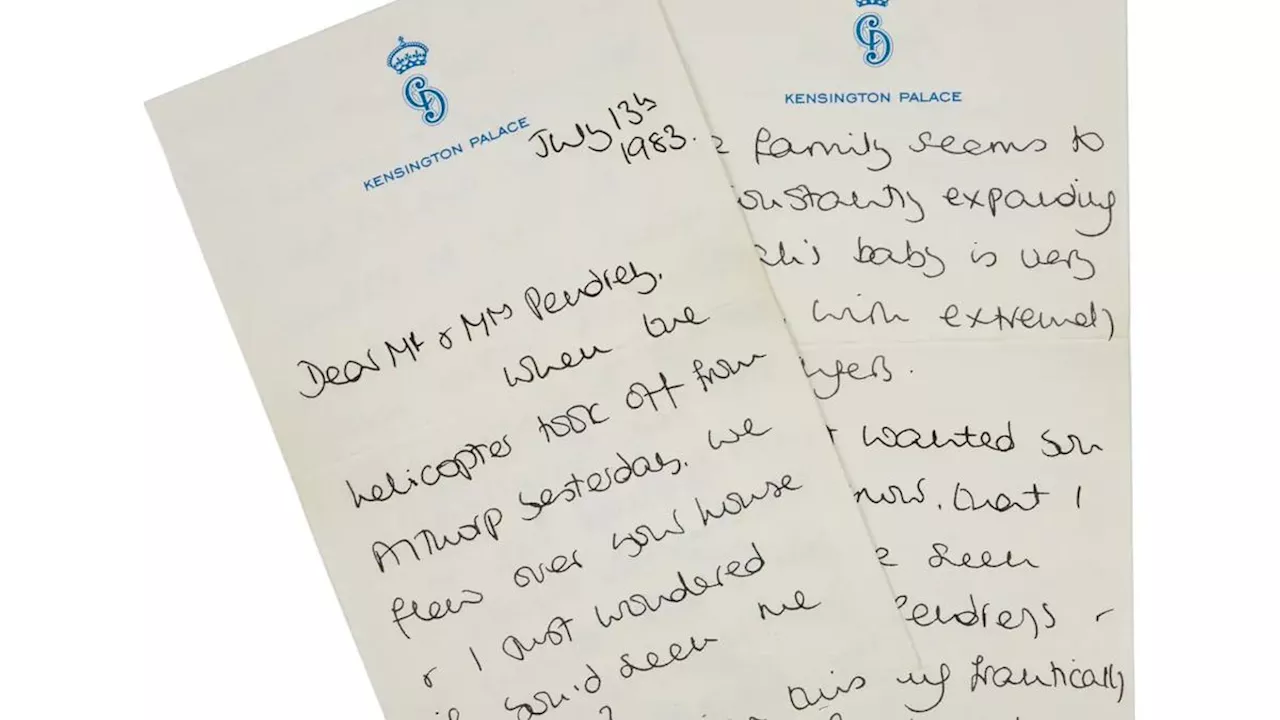 KENSINGTON PALACE
July 13th
1983.
Dear Mr & Mrs Pendrey,
When our
helicopter took off from
Althorp yesterday, we
flew over your house
& I just wondered
if you'd seen me
KENSINGTON PALACE
family seems to
constantly expanding
baby is very
with extremely
wanted you
know, that I
seen
Pendreys -
this frantically